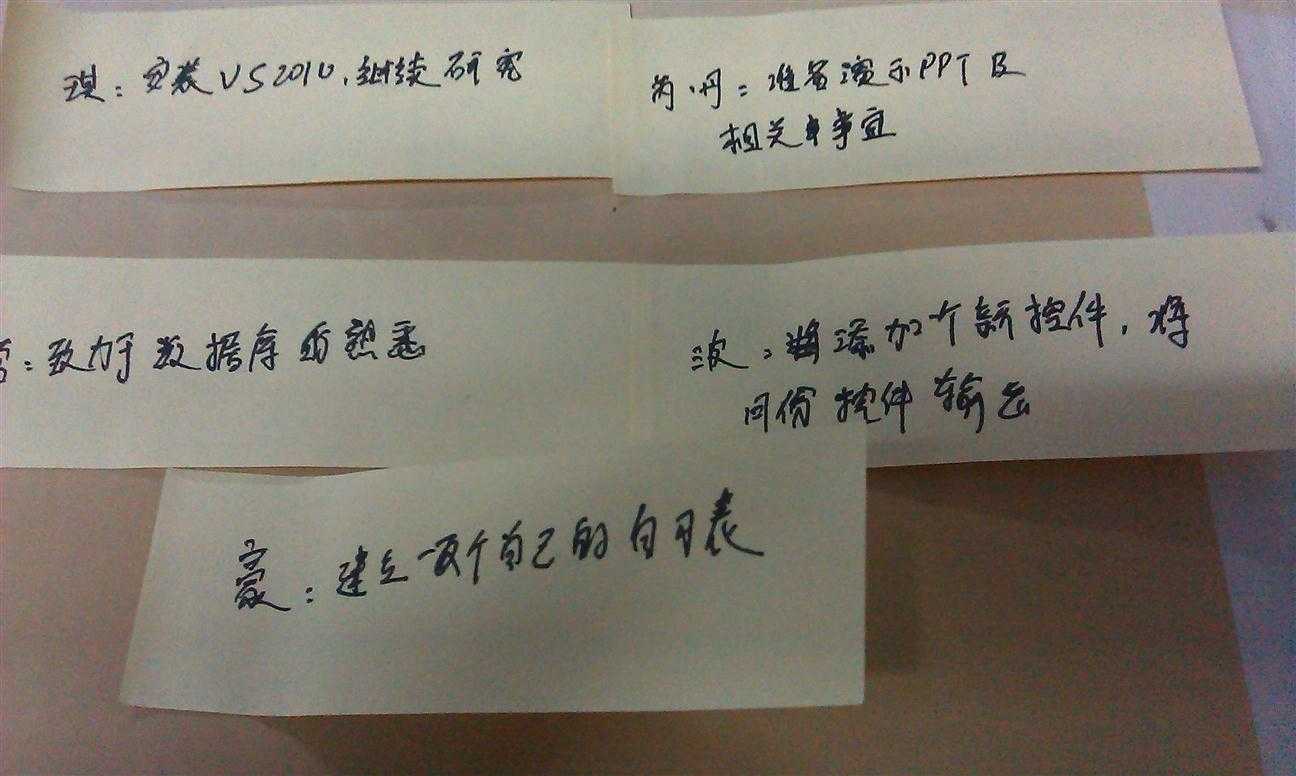 琪：安装VS2010，继续研究
丹：准备演示PPT及
相关事宜
：致力于数据库的熟悉
波：将添加个新控件，将
控件输出
豪：建立一两个自己的日表